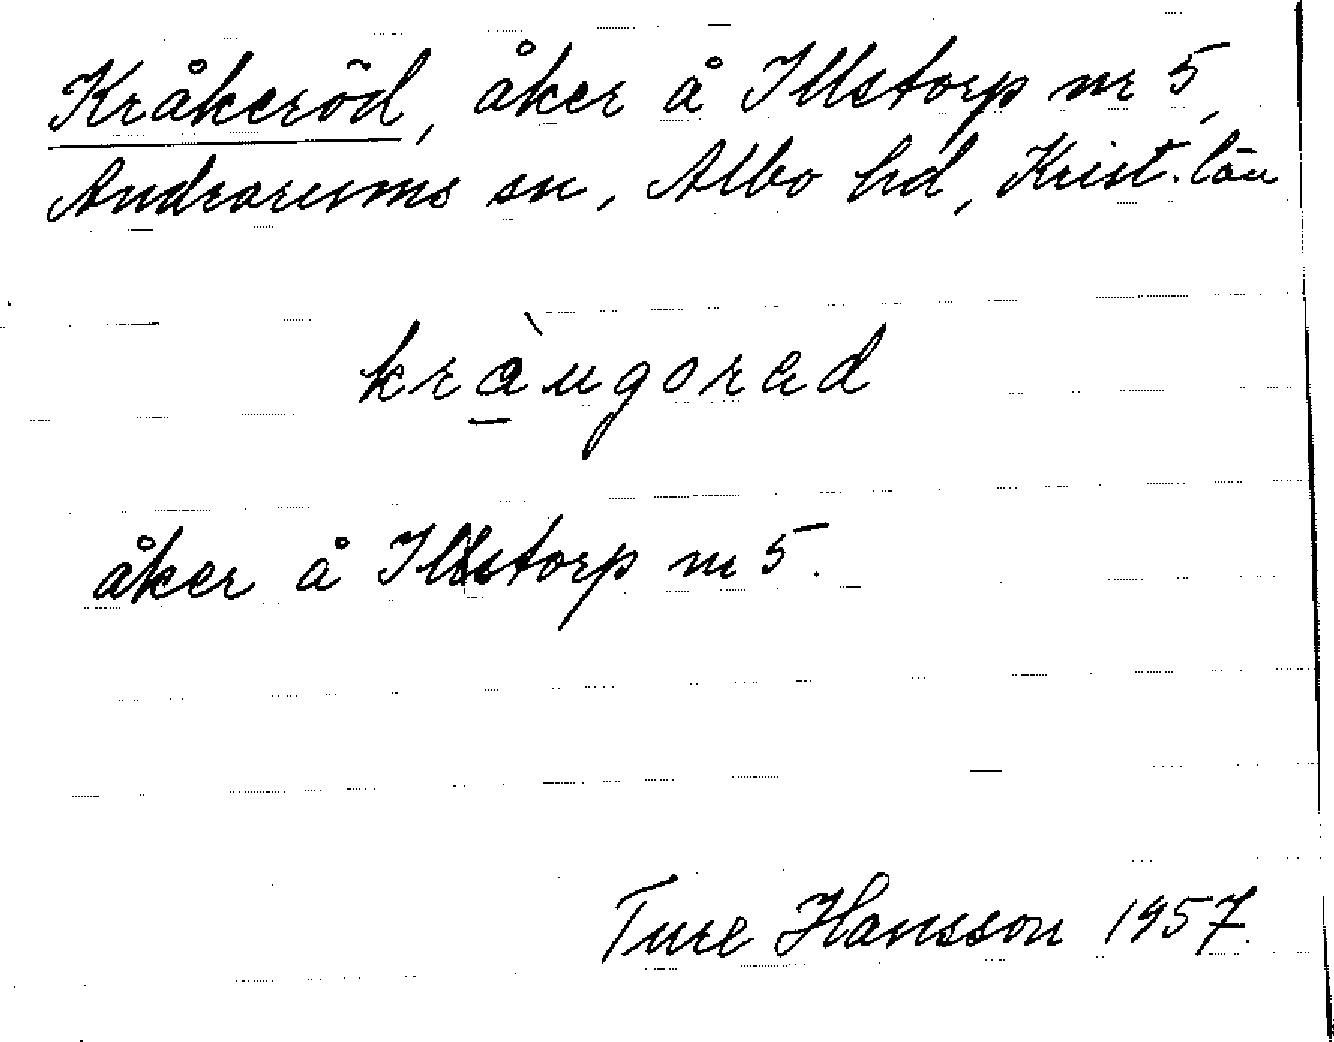 Kråkeröd, åker å Illstorp nr 5,
Andrarums sn, Albo hd, Krist. län
kràugoræd
åker å Illstorp nr 5.
Ture Hansson 1957.